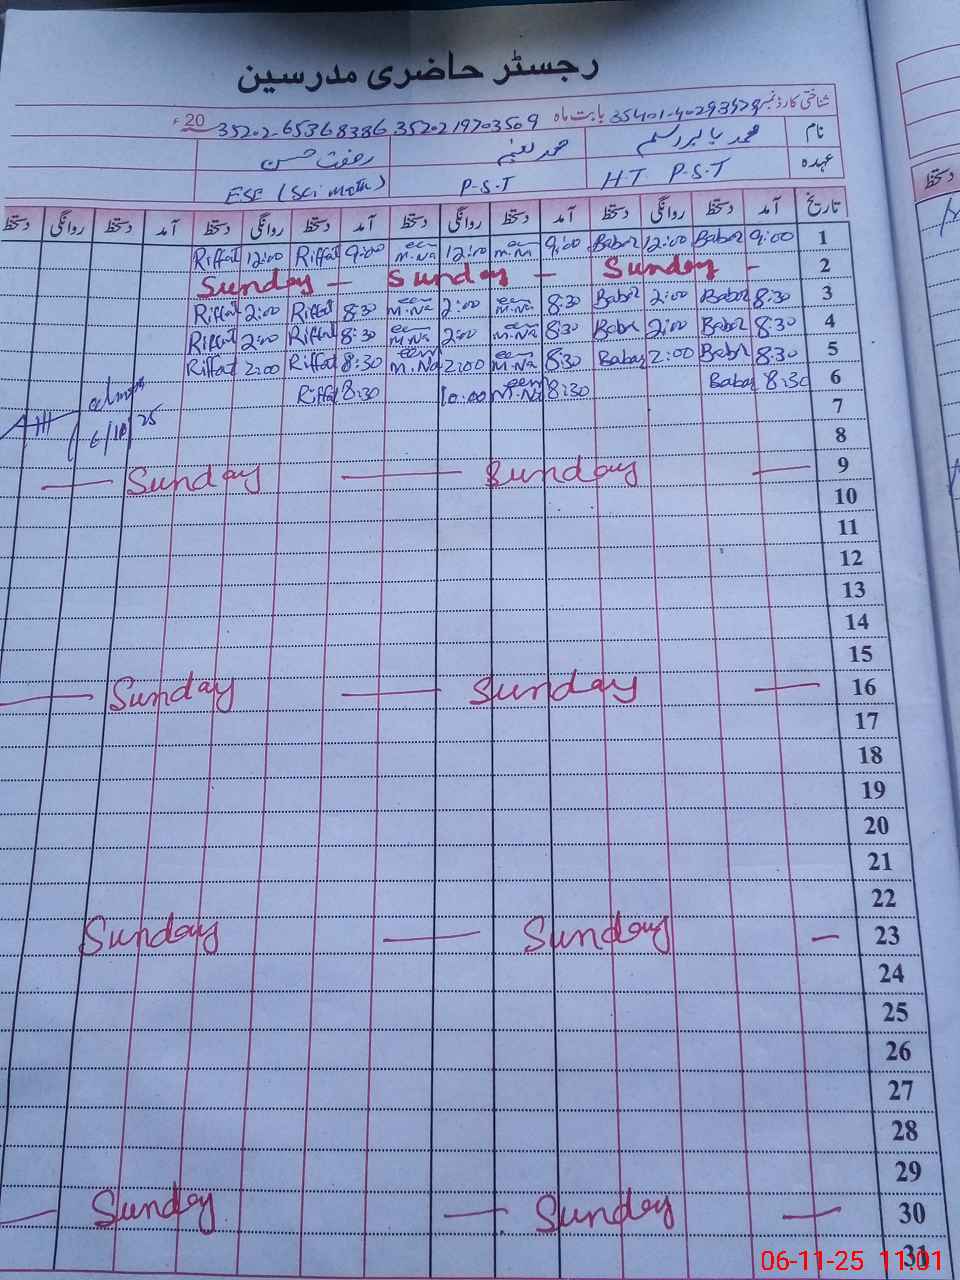 رجسٹر حاضری مدرسین
شناختی کارڈ نمبر 35401-4029392 بابت ماہ 3520219703509 35202-65368386 20ء
نام محمد بابر اسلم محمد نعیم رفعت حسن
عہدہ H.T P.S.T P-S-T ESE (Sci math)
تاریخ آمد دستخط روانگی دستخط آمد دستخط روانگی دستخط آمد دستخط روانگی دستخط آمد دستخط روانگی دستخط
1 9:00 Babar 12:00 Babar 9:00 12:00 9:00 Riffat 12:00 Riffat
2 Sunday - Sunday - Sunday -
3 8:30 Babar 2:00 Babar 8:30 2:00 8:30 Riffat 2:00 Riffat
4 8:30 Babar 2:00 Babar 8:30 2:00 8:30 Riffat 2:00 Riffat
5 8:30 Babar 2:00 Babar 8:30 2:00 8:30 Riffat 2:00 Riffat
6 8:30 Babar 8:30 10:00 8:30 Riffat
7
8
9 — Sunday — Sunday —
10
11
12
13
14
15
16 — Sunday — Sunday —
17
18
19
20
21
22
23 Sunday — Sunday —
24
25
26
27
28
29
30 — Sunday — Sunday —
31
06-11-25 11:01